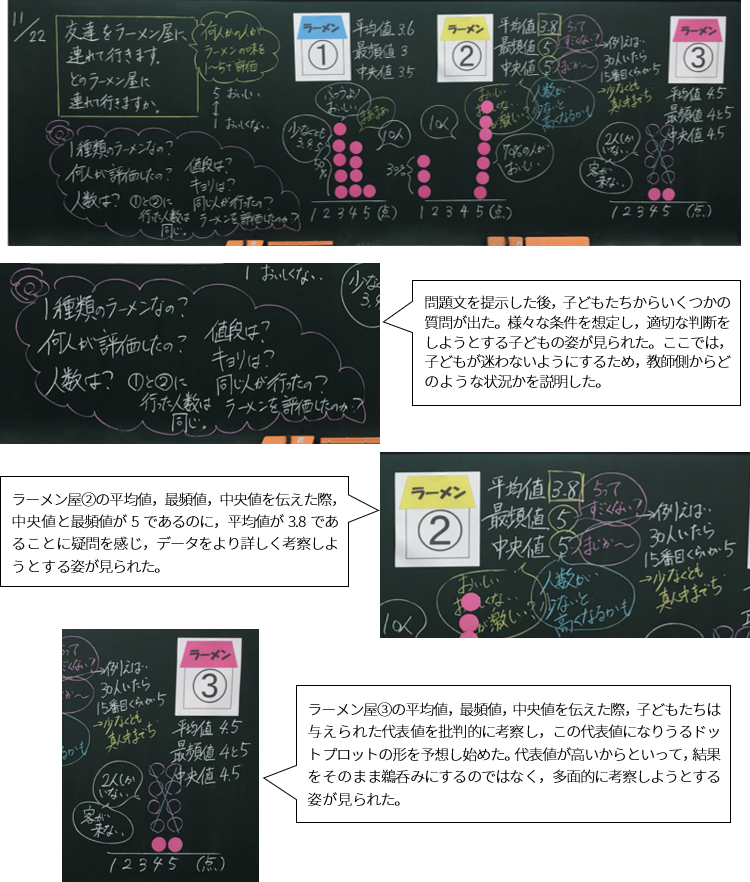 11/22
友達をラーメン屋に
連れて行きます。
どのラーメン屋に
連れて行きますか。
何人かの人が
ラーメンの味を
1~5で評価
5 おいしい
1 おいしくない
1種類のラーメンなの?
何人が評価したの?
人数は? ①と②に
行った人数は
同じ。
値段は?
キョリは?
同じ人が行ったの?
ラーメンを評価したのか?
ラーメン
①
平均値 3.6
最頻値 3
中央値 3.5
ふつうよ!
おいしい
まあまあ
少なくとも
3.4.5
10人
1 2 3 4 5 (点)
ラーメン
②
平均値 3.8
最頻値 5
中央値 5
5って
すごくない?
まじか~
→例えば…
30人いたら
15番目くらから5
→少なくとも
真ん中までち
人数が
少ないと
高くなるかも
10人
70%の人が
おいしい
1 2 3 4 5 (点)
ラーメン
③
平均値 4.5
最頻値 4と5
中央値 4.5
2人しか
いない…
客が
来ない…
1 2 3 4 5 (点)
1 おいしくない…
1種類のラーメンなの?
何人が評価したの?
人数は? ①と②に
行った人数は
同じ。
値段は?
キョリは?
同じ人が行ったの?
ラーメンを評価したのか?
問題文を提示した後,子どもたちからいくつかの
質問が出た。様々な条件を想定し,適切な判断を
しようとする子どもの姿が見られた。ここでは,
子どもが迷わないようにするため,教師側からど
のような状況かを説明した。
ラーメン屋②の平均値,最頻値,中央値を伝えた際,
中央値と最頻値が 5 であるのに,平均値が 3.8 であ
ることに疑問を感じ,データをより詳しく考察しよ
うとする姿が見られた。
ラーメン
②
平均値 3.8
最頻値 5
中央値 5
5って
すごくない?
まじか~
→例えば…
30人いたら
15番目くらから5
→少なくとも
真ん中までち
人数が
少ないと
高くなるかも
10人
ラーメン
③
平均値 4.5
最頻値 4と5
中央値 4.5
→例えば…
30人いたら
15番目くらから5
→少なくとも
真ん中までち
2人しか
いない…
客が
来ない…
1 2 3 4 5 (点)
ラーメン屋③の平均値,最頻値,中央値を伝えた際,子どもたちは
与えられた代表値を批判的に考察し,この代表値になりうるドッ
トプロットの形を予想し始めた。代表値が高いからといって,結果
をそのまま鵜呑みにするのではなく,多面的に考察しようとする
姿が見られた。